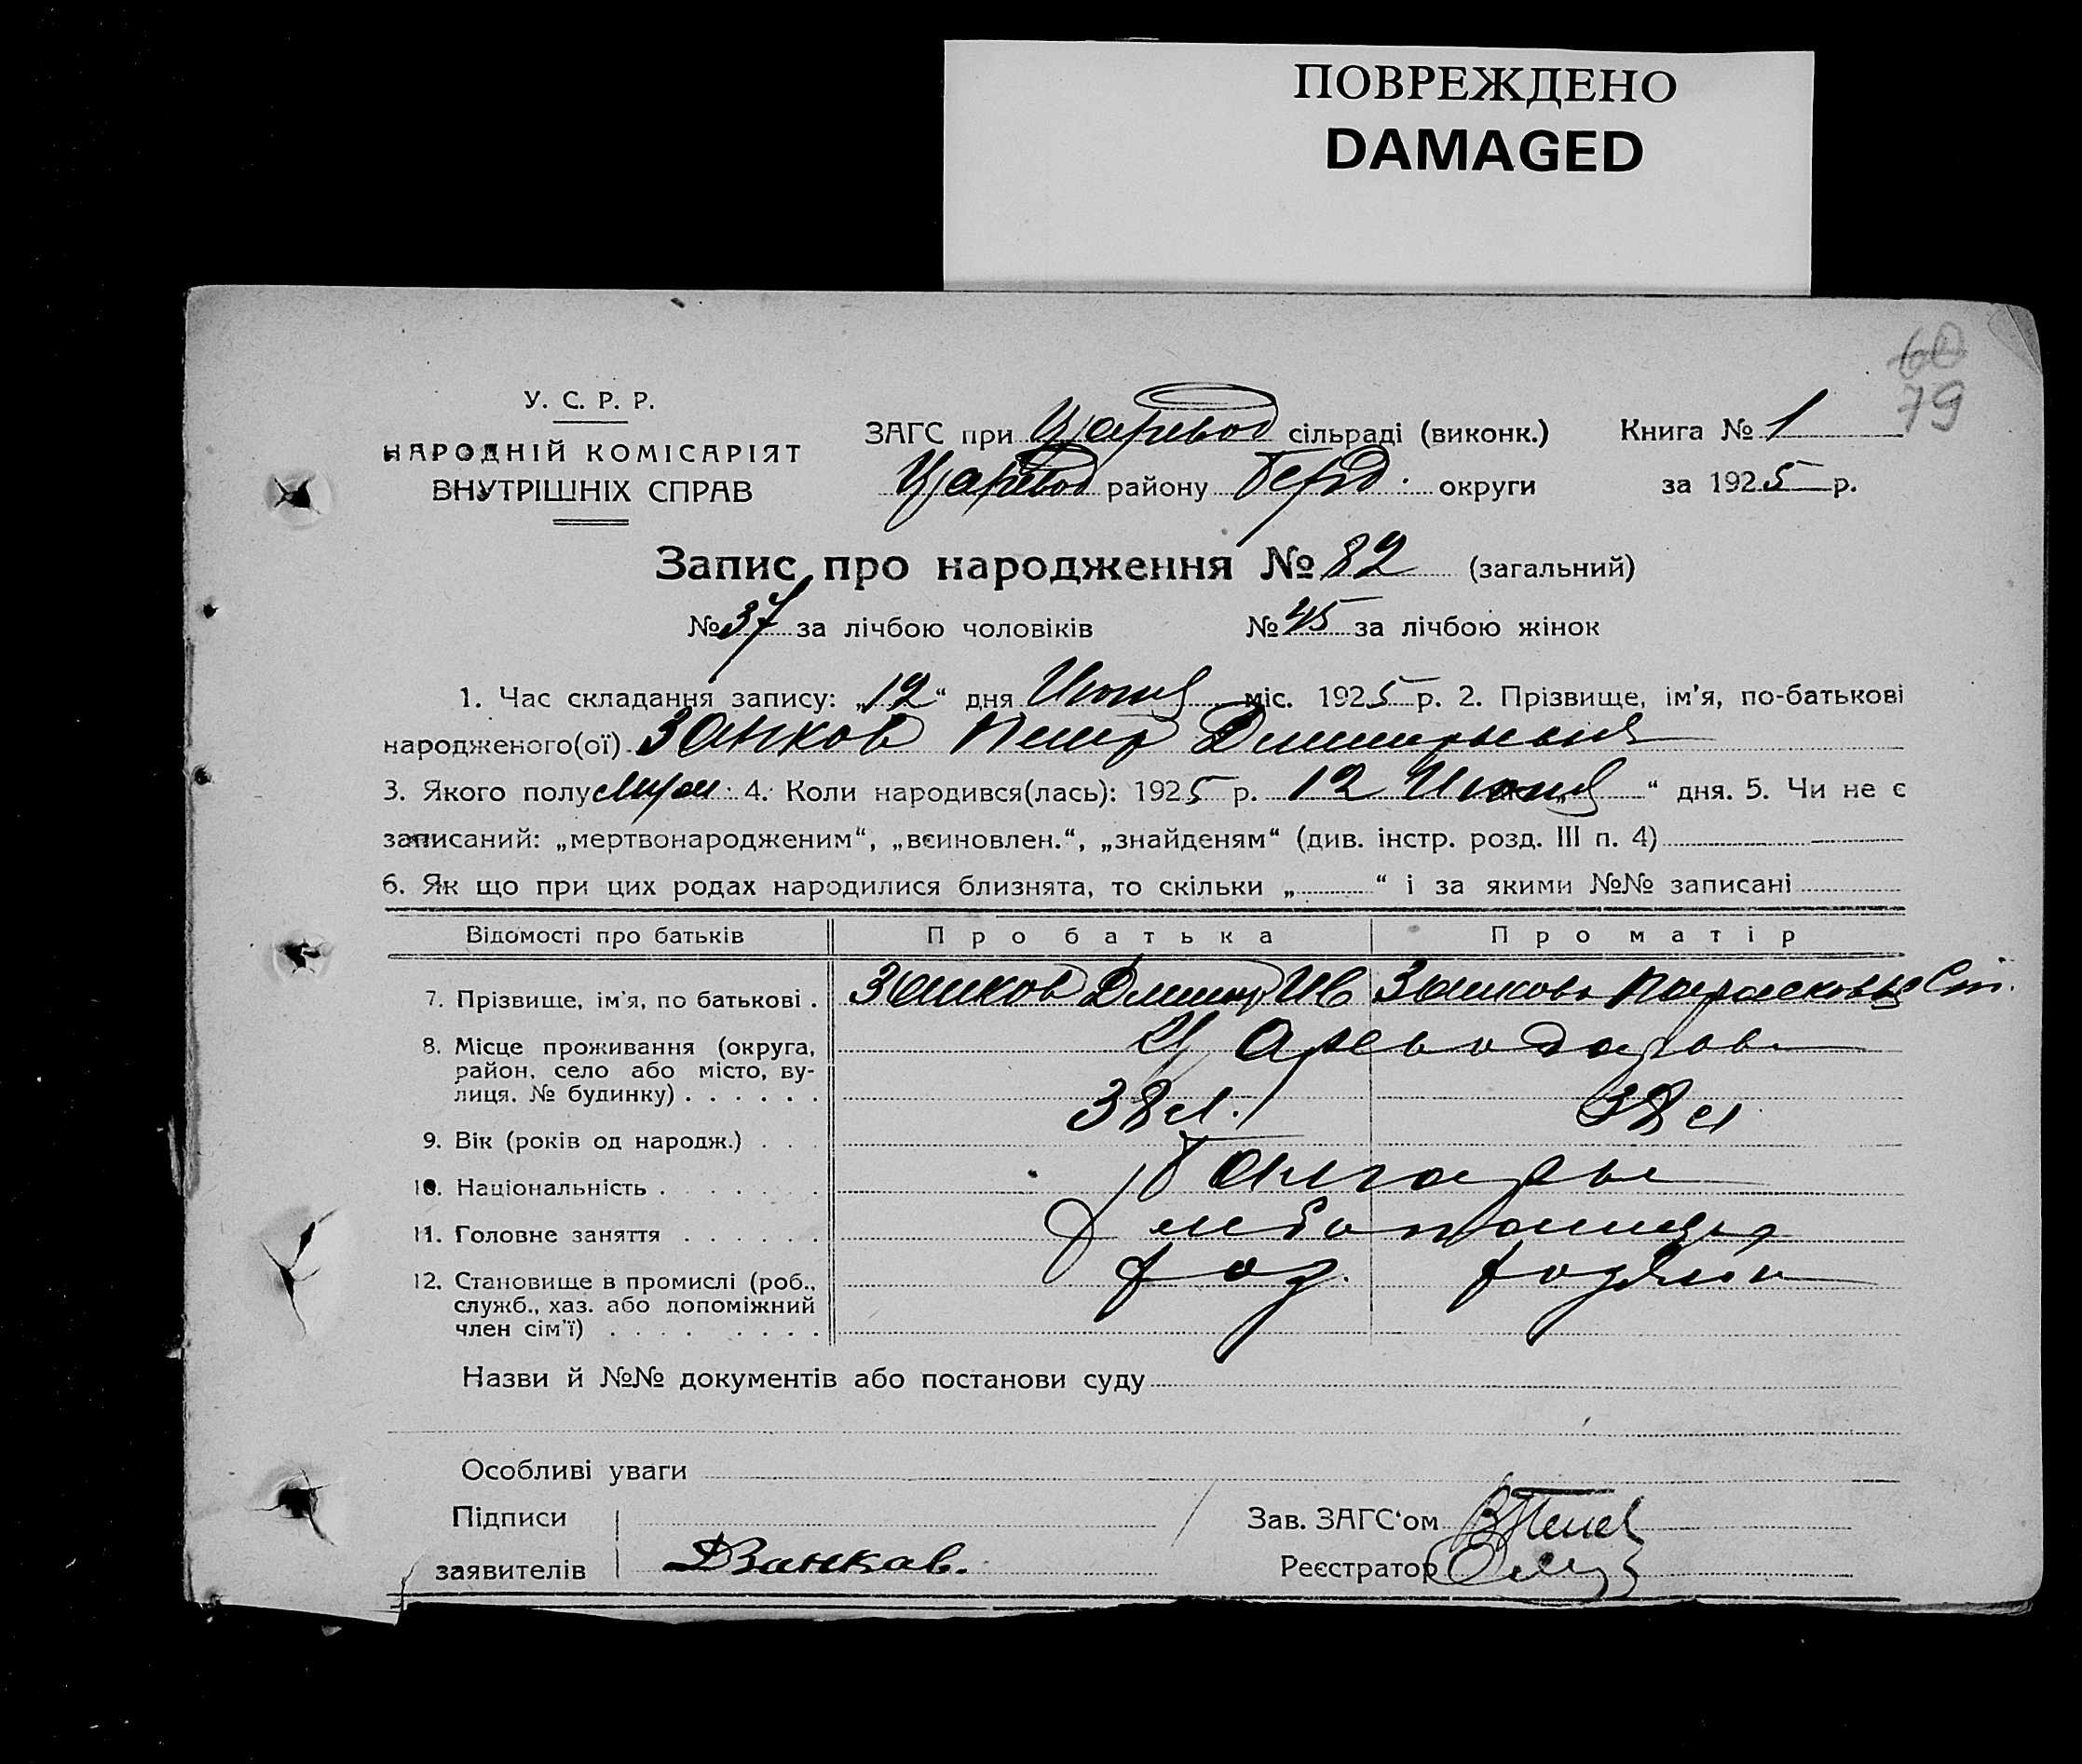 ПОВРЕЖДЕНО
DAMAGED
60
79
У. С. Р. Р.
НАРОДНІЙ КОМІСАРІЯТ
ВНУТРІШНІХ СПРАВ
ЗАГС при Царевод сільраді (виконк.) Книга № 1
Царевод району Берд. округи за 1925 р.
Запис про народження № 82 (загальний)
№ 37 за лічбою чоловіків № 45 за лічбою жінок
1. Час складання запису: „12“ дня Июня міс. 1925 р. 2. Прізвище, ім'я, по-батькові
народженого(ої) Занков Петр Дмитриевич
3. Якого полу муж. 4. Коли народився(лась): 1925 р. 12 Июня “ дня. 5. Чи не є
записаний: „мертвонародженим“, „всиновлен.“, „знайденям“ (див. інстр. розд. III п. 4)
6. Як що при цих родах народилися близнята, то скільки „ “ і за якими №№ записані
Відомості про батьків Про батька Про матір
7. Прізвище, ім'я, по батькові . Занков Дмитр Ив Занкова Парасковья Ст.
8. Місце проживання (округа, Цареводаровка
район, село або місто, ву-
лиця, № будинку) . . . . . .
9. Вік (років од народж.) . . . 38 л. 38 л
10. Національність . . . . . . . Болгары
11. Головне заняття . . . . . . Хлебопашцы
12. Становище в промислі (роб., хоз. хозяйка
служб., хаз. або допоміжний
член сім'ї) . . . . . . . .
Назви й №№ документів або постанови суду
Особливі уваги
Підписи Зав. ЗАГС'ом
заявителів ДЗанков. Реєстратор